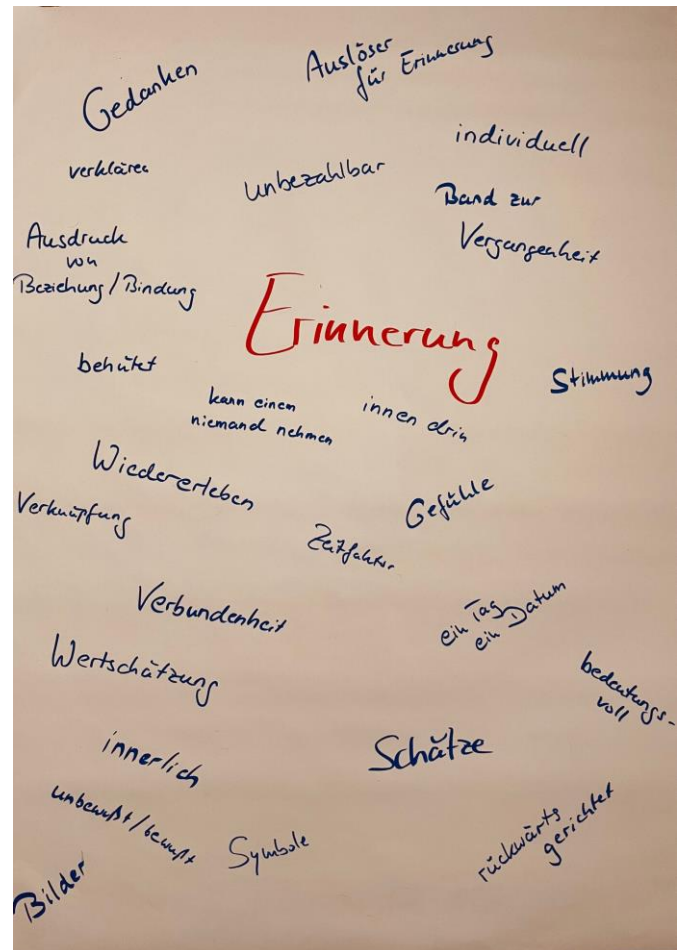 Gedanken
Auslöser
für Erinnerung
individuell
verklären
unbezahlbar
Band zur
Vergangenheit
Ausdruck
von
Beziehung/Bindung
Erinnerung
behütet
Stimmung
kann einem
niemand nehmen
innen drin
Wiedererleben
Gefühle
Verknüpfung
Zeitfaktor
Verbundenheit
ein Tag
ein Datum
Wertschätzung
bedeutungs-
voll
innerlich
Schätze
unbewußt/bewußt
Symbole
rückwärts
gerichtet
Bilder